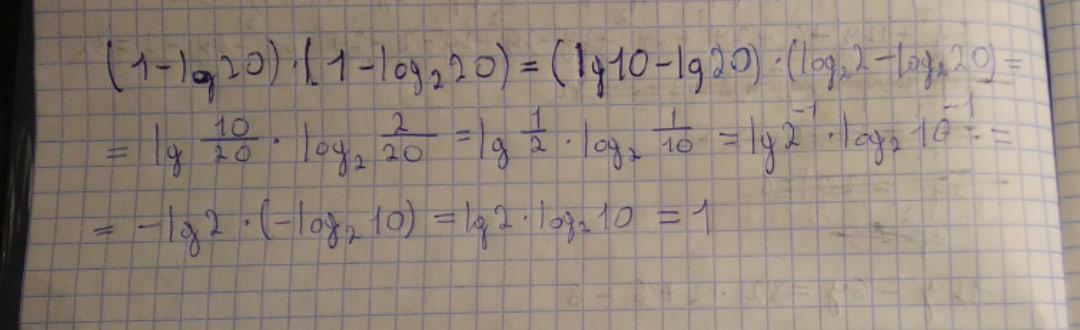 (1-lg20)·(1-log₂20)=(lg10-lg20)·(log₂2-log₂20)=
=lg 10/20 · log₂ 2/20 =lg 1/2 · log₂ 1/10 =lg2⁻¹·log₂10⁻¹=
=-lg2·(-log₂10)=lg2·log₂10=1